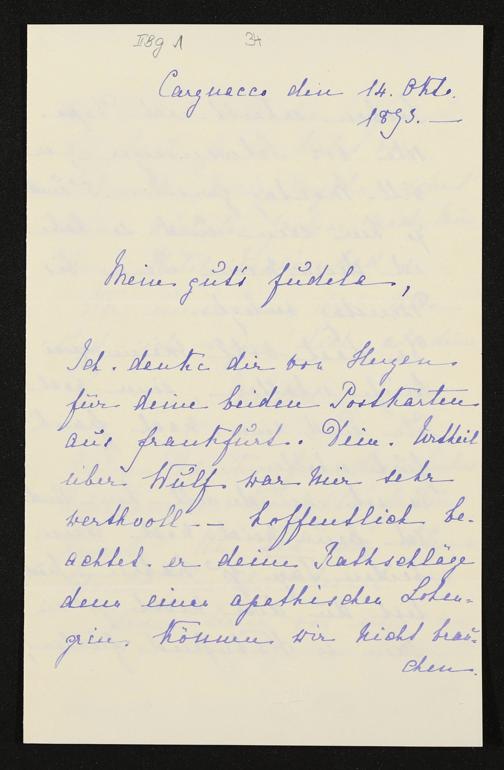 IIBg 1 34
Cargnacco den 14. Okto.
1893. —
Mein gut's fudele,
Ich denke dir von Herzen
für deine beiden Postkarten
aus Frankfurt. Dein Urtheil
über Wulf war mir sehr
werthvoll — hoffentlich be-
achtet er deine Rathschläge
denn einen apathischen Lohen-
grin können wir nicht brau-
chen.